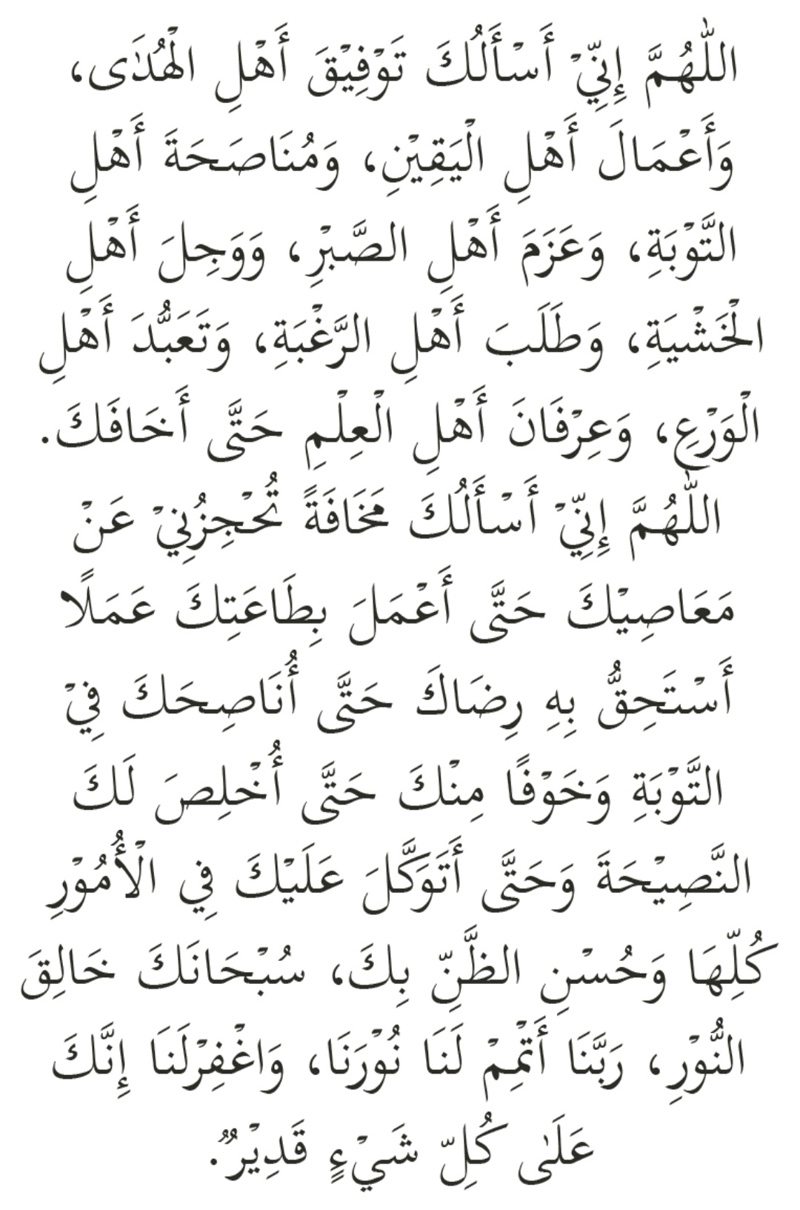 اللّٰهُمَّ إِنِّيْ أَسْأَلُكَ تَوْفِيْقَ أَهْلِ الْهُدَى،
وَأَعْمَالَ أَهْلِ الْيَقِيْنِ، وَمُنَاصَحَةَ أَهْلِ
التَّوْبَةِ، وَعَزَمَ أَهْلِ الصَّبْرِ، وَوَجِلَ أَهْلِ
الْخَشْيَةِ، وَطَلَبَ أَهْلِ الرَّغْبَةِ، وَتَعَبُّدَ أَهْلِ
الْوَرْعِ، وَعِرْفَانَ أَهْلِ الْعِلْمِ حَتَّى أَخَافَكَ.
اللّٰهُمَّ إِنِّيْ أَسْأَلُكَ مَخَافَةً تُحْجِزُنِيْ عَنْ
مَعَاصِيْكَ حَتَّى أَعْمَلَ بِطَاعَتِكَ عَمَلًا
أَسْتَحِقُّ بِهِ رِضَاكَ حَتَّى أُنَاصِحَكَ فِيْ
التَّوْبَةِ وَخَوْفًا مِنْكَ حَتَّى أُخْلِصَ لَكَ
النَّصِيْحَةَ وَحَتَّى أَتَوَكَّلَ عَلَيْكَ فِي الْأُمُوْرِ
كُلِّهَا وَحُسْنِ الظَّنِّ بِكَ، سُبْحَانَكَ خَالِقَ
النُّوْرِ، رَبَّنَا أَتْمِمْ لَنَا نُوْرَنَا، وَاغْفِرْلَنَا إِنَّكَ
عَلَى كُلِّ شَيْءٍ قَدِيْرٌ.